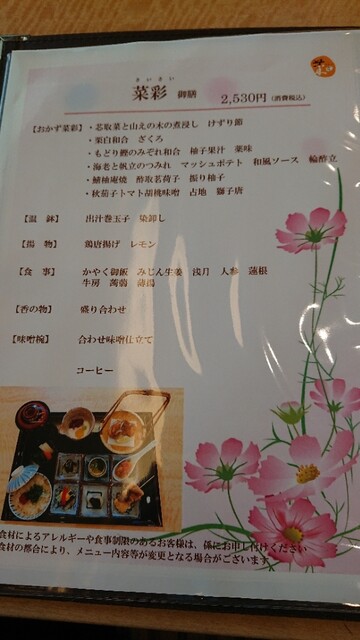 さいさい
菜彩 御膳 2,530円(消費税込)
【おかず菜彩】・芯取菜と山えの木の煮浸し けずり節
・栗白和合 ざくろ
・もどり鰹のみぞれ和合 柚子果汁 薬味
・海老と帆立のつみれ マッシュポテト 和風ソース 輪酢立
・鯖柚庵焼 酢取茗荷子 振り柚子
・秋茄子トマト胡桃味噌 占地 獅子唐
【温 鉢】 出汁巻玉子 染卸し
【揚 物】 鶏唐揚げ レモン
【食 事】 かやく御飯 みじん生姜 浅月 人参 蓮根
牛房 蒟蒻 薄揚
【香の物】 盛り合わせ
【味噌椀】 合わせ味噌仕立て
コーヒー
食材によるアレルギーや食事制限のあるお客様は、係にお申し付けください
食材の都合により、メニュー内容等が変更となる場合がございます